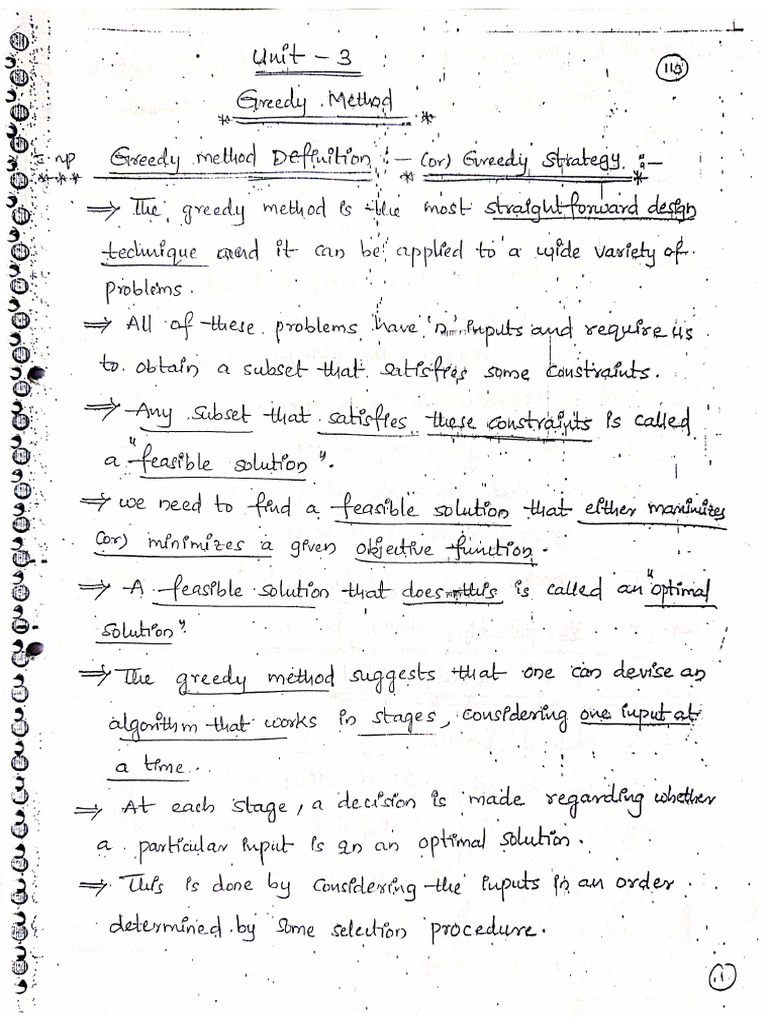 Unit - 3
113
Greedy Method
Imp Greedy method Definition :- (or) Greedy Strategy :-
⇒ The greedy method is the most straight forward design
technique and it can be applied to a wide variety of
problems.
⇒ All of these problems have 'n' inputs and require us
to obtain a subset that satisfies some constraints.
⇒ Any subset that satisfies these constraints is called
a "feasible solution".
⇒ we need to find a feasible solution that either maximizes
(or) minimizes a given objective function.
⇒ A feasible solution that does this is called an "optimal
solution".
⇒ The greedy method suggests that one can devise an
algorithm that works in stages, considering one input at
a time.
⇒ At each stage, a decision is made regarding whether
a particular input is in an optimal solution.
⇒ This is done by considering the inputs in an order
determined by some selection procedure.
1